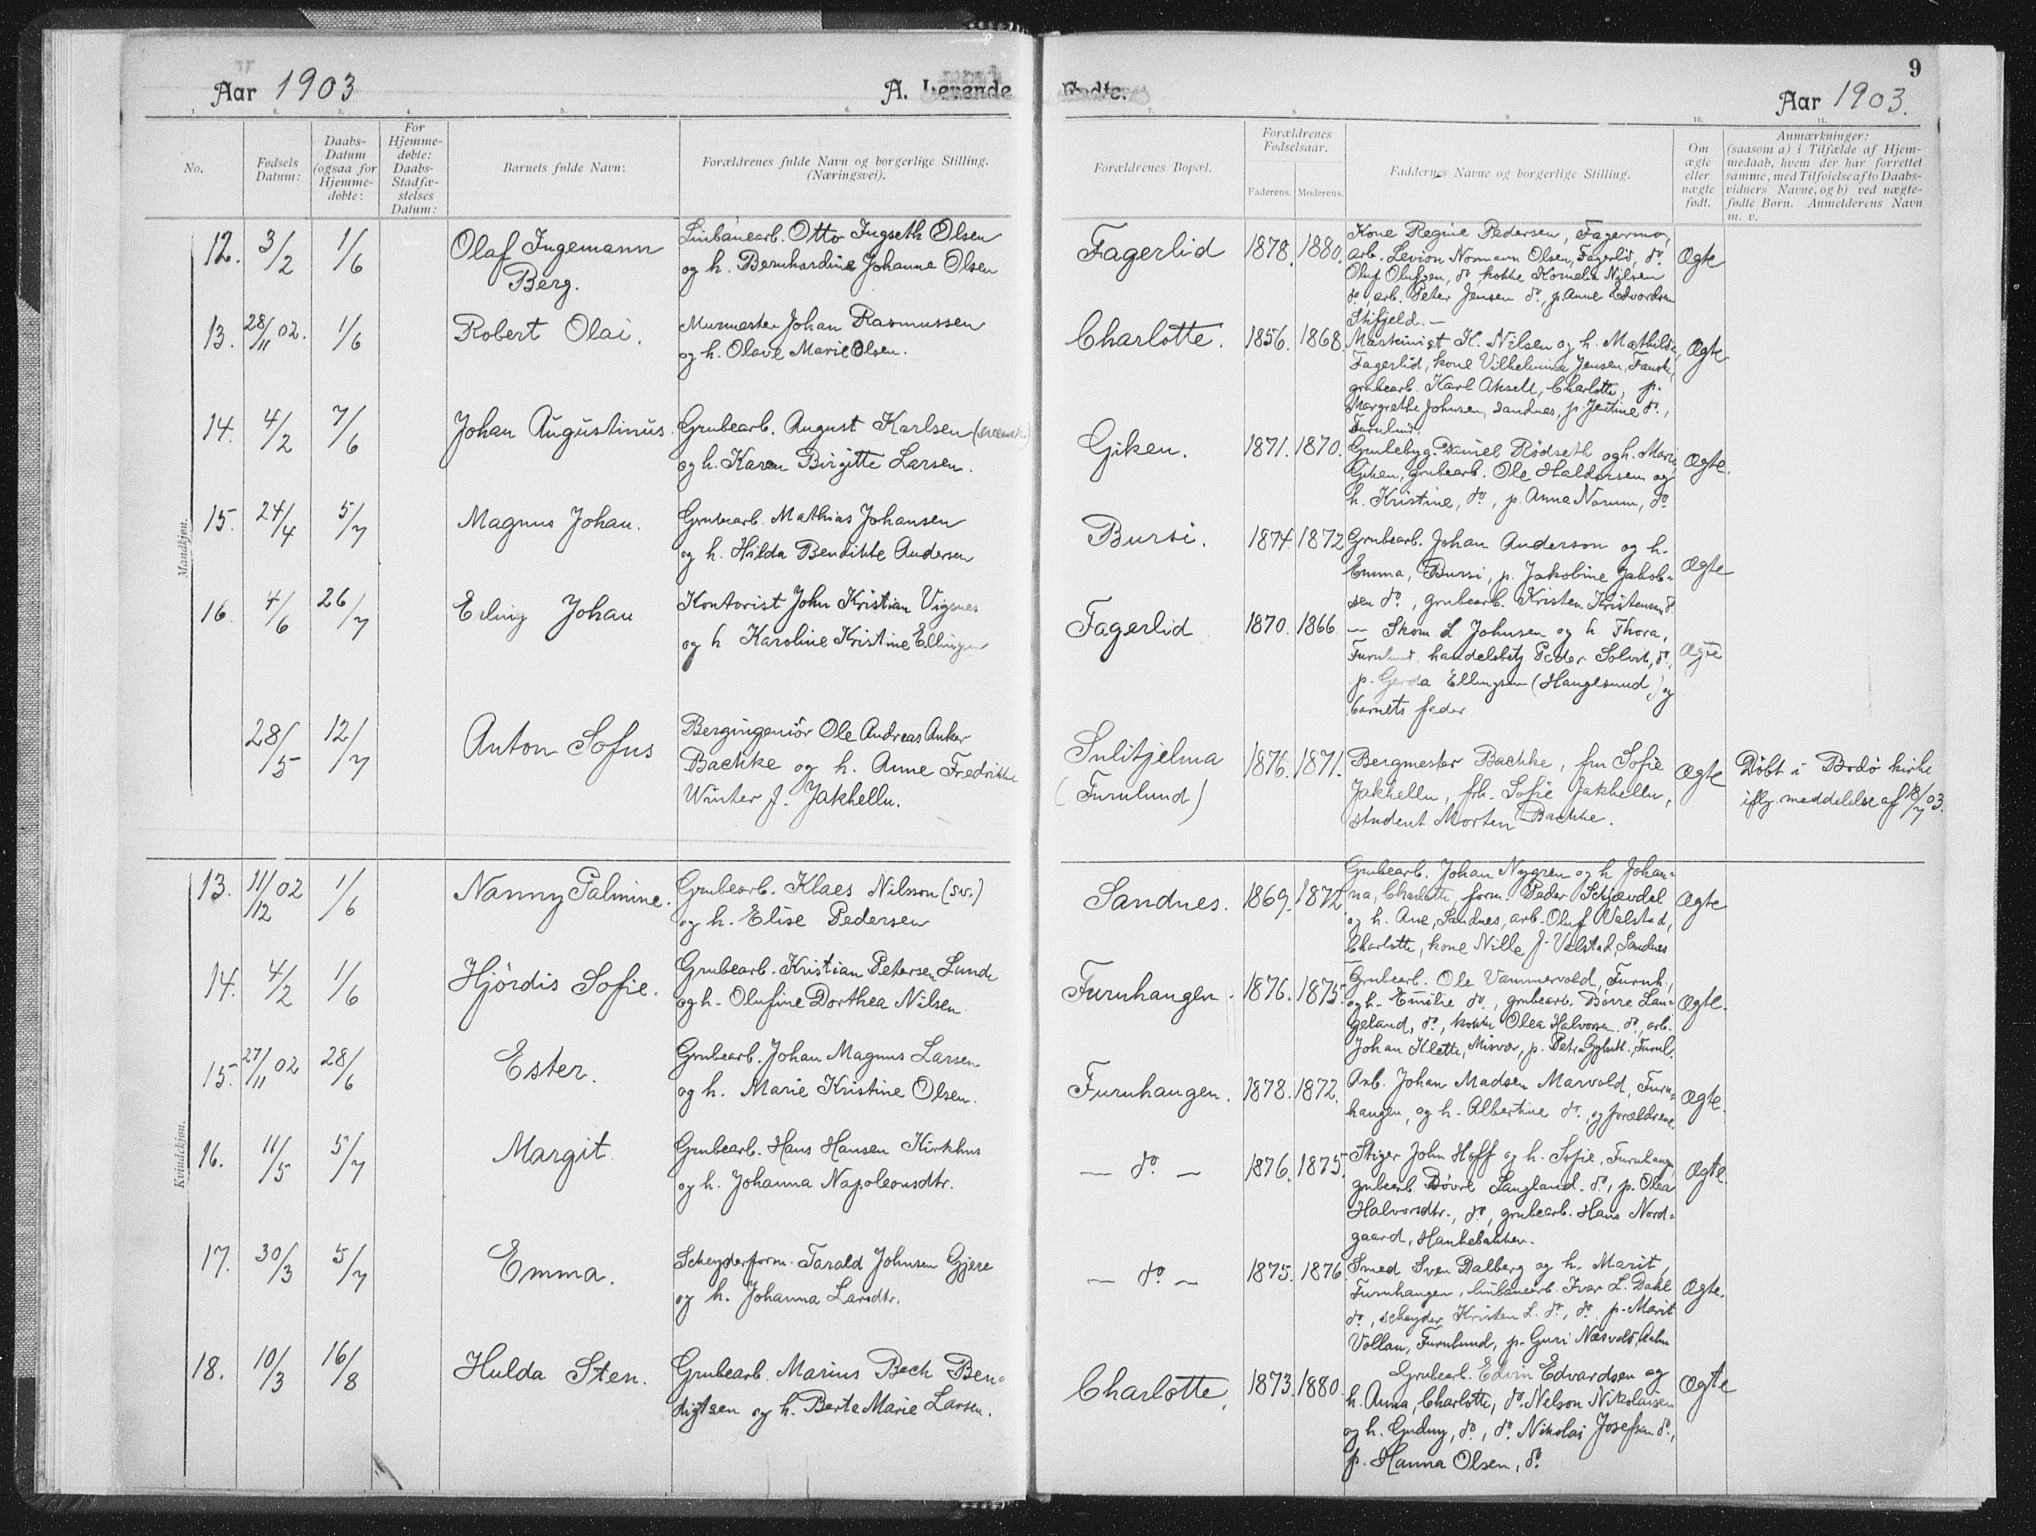 Aar 1903
A. Levende
Fødte.
9
Aar 1903.
1. 2. 3. 4. 5. 6. 7. 8. 9. 10. 11.
No.
Fødsels
Datum:
Daabs-
Datum
(ogsaa for
Hjemme-
døbte:
For
Hjemme-
døbte:
Daabs-
Stadfæ-
stelses
Datum:
Barnets fulde Navn:
Forældrenes fulde Navn og borgerlige Stilling.
(Næringsvei).
Forældrenes Bopæl.
Forældrenes
Fødselsaar.
Faderens. Moderens.
Faddernes Navne og borgerlige Stilling.
Om
ægte
eller
uægte
født.
Anmærkninger:
(saasom a) i Tilfælde af Hjem-
medaab, hvem der har forrettet
samme, med Tilføielse af to Daabs-
vidners Navne, og b) ved uægte-
fødte Børn. Anmelderens Navn
m. v.
Mandkjøn.
12. 3/2 1/6
Olaf Ingemann
Berg.
Linbanearb. Otto Ingseth Olsen
og h. Bernhardine Johanne Olsen
Fagerlid 1878. 1880.
Kone Regine Pedersen, Fagermo,
arb. Levion Normann Olsen, Fagerlid, do.
Oluf Olufsen, do, kokke Kornelia Nilsen
do, arb. Peter Jensen do, p. Anne Edvardsen
Stifjeld. —
Ægte
13. 28/11 02. 1/6
Robert Olai.
Murmester Johan Rasmussen
og h. Olave Marie Olsen.
Charlotte. 1856. 1868.
Maskinist K. Nilsen og h. Mathilde
Fagerlid, kone Vilhelmina Jensen, Fauske,
grubearb. Karl Aksell, Charlotte, p.
Margrethe Johnsen, Sandnes, p. Jentine do.,
Furulund.
Ægte
14. 4/2 7/6
Johan Augustinus.
Grubearb. August Karlsen (svensk)
og h. Karen Birgitte Larsen.
Giken. 1871. 1870.
Daniel Rødseth og h. Marie
Giken, grubearb. Ole Haldorsen og
h. Kristine, do, p. Anna Norum, do
Ægte.
15. 24/4 5/7
Magnus Johan.
Grubearb. Mathias Johansen
og h. Hilda Bendikte Andersen
Bursi. 1874. 1872
Grubearb. Johan Anderson og h.
Emma, Bursi, p. Jakobine Jakob-
sen do, grubearb. Kristen Kristensen do
Ægte
16. 4/6 26/7
Erling Johan
Kontorist John Kristian Vigsnes
og h Karoline Kristine Ellingsen
Fagerlid 1870. 1866
— Skom. L Johnsen og h. Thora,
Furulund, handelsbetj Peder Solvik, do,
p. Gerda Ellingsen (Haugesund,) og
barnets fader
Ægte
28/5 12/7
Anton Sofus
Bergingeniør Ole Andreas Anker
Bachke og h. Anne Fredrikke
Winter f. Jakhelln.
Sulitjelma
(Furulund)
1876. 1871.
Bergmester Bachke, fru Sofie
Jakhelln, frk. Sofie Jakhelln,
student Morten Bachke.
Ægte
Døbt i Bodø kirke
iflg. meddelelse af 18/7 03.
Kvindekjøn.
13. 11/12 02 1/6
Nanny Palmine.
Grubearb. Klaes Nilsson (sv.)
og h. Elise Pedersen
Sandnes. 1869. 1872
Grubearb. Johan Nygren og h Johan-
na, Charlotte, form. Peder Skjævdal
og h. Ane, Sandnes, arb. Oluf Valstad,
Charlotte, kone Nille J. Valstad, Sandnes
Ægte
14. 4/2 1/6
Hjördis Sofie.
Grubearb. Kristian Petersen Lunde
og h. Olufine Dorthea Nilsen
Furuhaugen. 1876. 1875
Grubearb. Ole Vammervold, Furuh.,
og h. Emilie do., grubearb. Børre Lan-
geland, do, kokke Olea Halvorsen do, arb.
Johan Klette, Misvær, p. Petra Furul.
Ægte.
15. 27/11 02 28/6
Ester.
Grubearb. Johan Magnus Larsen
og h. Marie Kristine Olsen.
Furuhaugen. 1878. 1872.
Arb. Johan Madsen Marvold, Furu-
haugen, og h. Albertine do., og forældrene.
Ægte.
16. 11/5 5/7
Margit
Grubearb. Hans Hansen Kirkhus
og h. Johanna Napoleonsdtr.
— do — 1876. 1875.
Stiger John Hoff og h. Sofie, Furuhaugen
grubearb. Børre Langland. do, p. Olea
Halvorsdtr., do, grubearb. Hans Nord-
gaard, Hankebakken.
Ægte.
17. 30/3 5/7
Emma.
Scheyderform. Tarald Johnsen Gjere
og h. Johanna Larsdtr.
— do — 1875. 1876
Smed Sven Dalberg og h. Marit,
Furuhaugen, linbanearb. Ivar L. Dahl
do, scheyder Kristen L. do, do, p. Marit
Vollan, Furulund, p. Guri Næsvold,
Ægte.
18. 10/3 16/8
Hulda Sten.
Grubearb. Marius Bech Ben-
digtsen og h. Berte Marie Larsen.
Charlotte. 1873. 1880.
Grubearb. Edvin Edvardsen og
h. Anna, Charlotte, do. Nelson Nikolaisen
og h. Gudny, do, do. Nikolai Josefsen do,
p. Hanna Olsen, do
Ægte